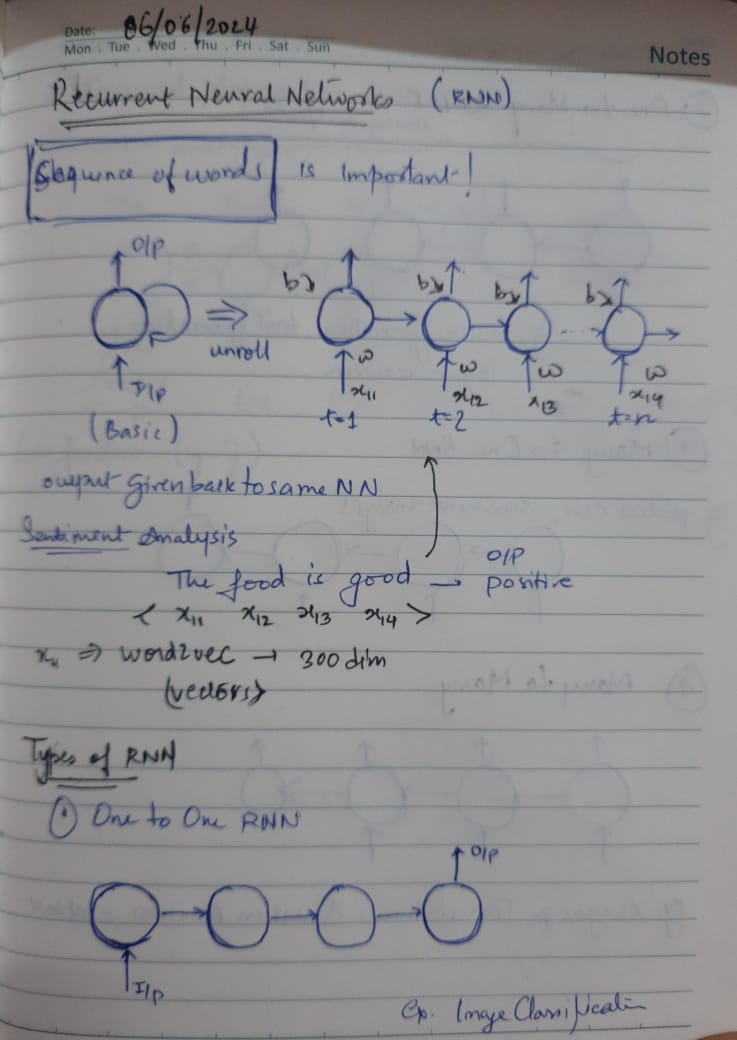 Date: 06/06/2024
Mon . Tue . Wed . Thu . Fri . Sat . Sun
Notes
Recurrent Neural Networks (RNN)
Sequence of words is important!
O/P
unroll
I/P
(Basic)
w w w w
x11 x12 x13 x14
t=1 t=2 t=n
output given back to same NN
Sentiment Analysis
The food is good → O/P positive
< x11 x12 x13 x14 >
⇒ word2vec → 300 dim
(vectors)
Types of RNN
① One to One RNN
O/P
I/P
Image Classification